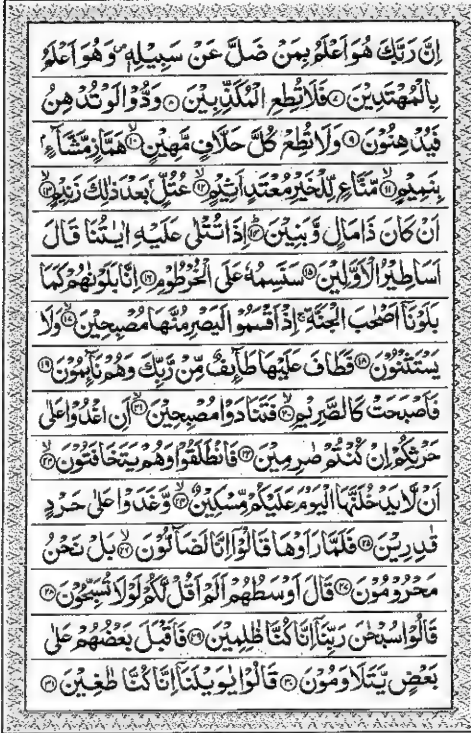 اِنَّ رَبَّكَ هُوَ اَعْلَمُ بِمَنْ ضَلَّ عَنْ سَبِيْلِهٖ ۪ وَهُوَ اَعْلَمُ
بِالْمُهْتَدِيْنَ ۷ فَلَا تُطِعِ الْمُكَذِّبِيْنَ ۸ وَدُّوْا لَوْ تُدْهِنُ
فَيُدْهِنُوْنَ ۹ وَلَا تُطِعْ كُلَّ حَلَّافٍ مَّهِيْنٍ ۱۰ هَمَّازٍ مَّشَّآءٍۭ
بِنَمِيْمٍ ۱۱ مَّنَّاعٍ لِّلْخَيْرِ مُعْتَدٍ اَثِيْمٍ ۱۲ عُتُلٍّۭ بَعْدَ ذٰلِكَ زَنِيْمٍ ۱۳
اَنْ كَانَ ذَا مَالٍ وَّبَنِيْنَ ۱۴ اِذَا تُتْلٰى عَلَيْهِ اٰيٰتُنَا قَالَ
اَسَاطِيْرُ الْاَوَّلِيْنَ ۱۵ سَنَسِمُهٗ عَلَى الْخُرْطُوْمِ ۱۶ اِنَّا بَلَوْنٰهُمْ كَمَا
بَلَوْنَاۤ اَصْحٰبَ الْجَنَّةِ ۚ اِذْ اَقْسَمُوْا لَيَصْرِمُنَّهَا مُصْبِحِيْنَ ۱۷ وَلَا
يَسْتَثْنُوْنَ ۱۸ فَطَافَ عَلَيْهَا طَآئِفٌ مِّنْ رَّبِّكَ وَهُمْ نَآئِمُوْنَ ۱۹
فَاَصْبَحَتْ كَالصَّرِيْمِ ۲۰ فَتَنَادَوْا مُصْبِحِيْنَ ۲۱ اَنِ اغْدُوْا عَلٰى
حَرْثِكُمْ اِنْ كُنْتُمْ صٰرِمِيْنَ ۲۲ فَانْطَلَقُوْا وَهُمْ يَتَخَافَتُوْنَ ۲۳
اَنْ لَّا يَدْخُلَنَّهَا الْيَوْمَ عَلَيْكُمْ مِّسْكِيْنٌ ۲۴ وَّغَدَوْا عَلٰى حَرْدٍ
قٰدِرِيْنَ ۲۵ فَلَمَّا رَاَوْهَا قَالُوْۤا اِنَّا لَضَآلُّوْنَ ۲۶ بَلْ نَحْنُ
مَحْرُوْمُوْنَ ۲۷ قَالَ اَوْسَطُهُمْ اَلَمْ اَقُلْ لَّكُمْ لَوْلَا تُسَبِّحُوْنَ ۲۸
قَالُوْا سُبْحٰنَ رَبِّنَاۤ اِنَّا كُنَّا ظٰلِمِيْنَ ۲۹ فَاَقْبَلَ بَعْضُهُمْ عَلٰى
بَعْضٍ يَّتَلَاوَمُوْنَ ۳۰ قَالُوْا يٰوَيْلَنَاۤ اِنَّا كُنَّا طٰغِيْنَ ۳۱